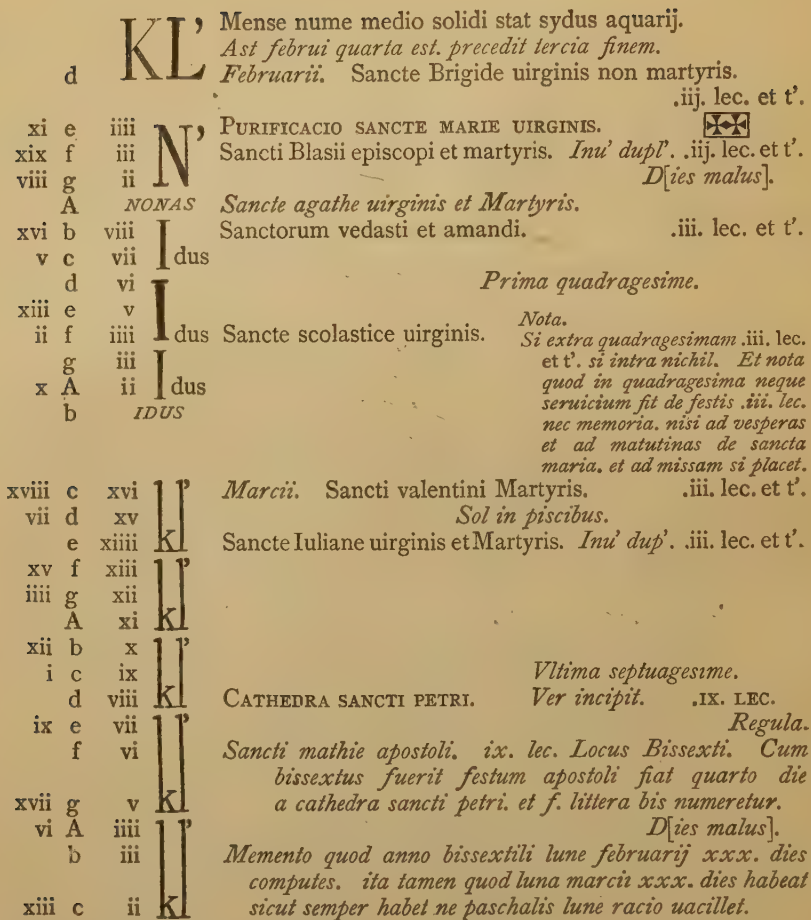 KL’ Mense nume medio solidi stat sydus aquarij.
Ast februi quarta est. precedit tercia finem.
d Februarii. Sancte Brigide uirginis non martyris.
.iij. lec. et t’.
xi e iiii N’ PURIFICACIO SANCTE MARIE UIRGINIS.
xix f iii Sancti Blasii episcopi et martyris. Inu’ dupl’. .iij. lec. et t’.
viii g ii D[ies malus].
A NONAS Sancte agathe uirginis et Martyris.
xvi b viii Idus Sanctorum vedasti et amandi. .iii. lec. et t’.
v c vii
d vi Idus Prima quadragesime.
xiii e v
ii f iiii Sancte scolastice uirginis. Nota.
Si extra quadragesimam .iii. lec.
g iii Idus et t’. si intra nichil. Et nota
x A ii quod in quadragesima neque
b IDUS seruicium fit de festis .iii. lec.
nec memoria. nisi ad vesperas
et ad matutinas de sancta
maria. et ad missam si placet.
xviii c xvi kl’ Marcii. Sancti valentini Martyris. .iii. lec. et t’.
vii d xv Sol in piscibus.
e xiiii Sancte Iuliane uirginis et Martyris. Inu’ dup’. .iii. lec. et t’.
xv f xiii kl’
iiii g xii
A xi
xii b x kl’
i c ix Vltima septuagesime.
d viii CATHEDRA SANCTI PETRI. Ver incipit. .IX. LEC.
ix e vii kl’ Regula.
f vi Sancti mathie apostoli. ix. lec. Locus Bissexti. Cum
bissextus fuerit festum apostoli fiat quarto die
xvii g v a cathedra sancti petri. et f. littera bis numeretur.
vi A iiii kl’ D[ies malus].
b iii Memento quod anno bissextili lune februarij xxx. dies
computes. ita tamen quod luna marcii xxx. dies habeat
xiii c ii sicut semper habet ne paschalis lune racio uacillet.